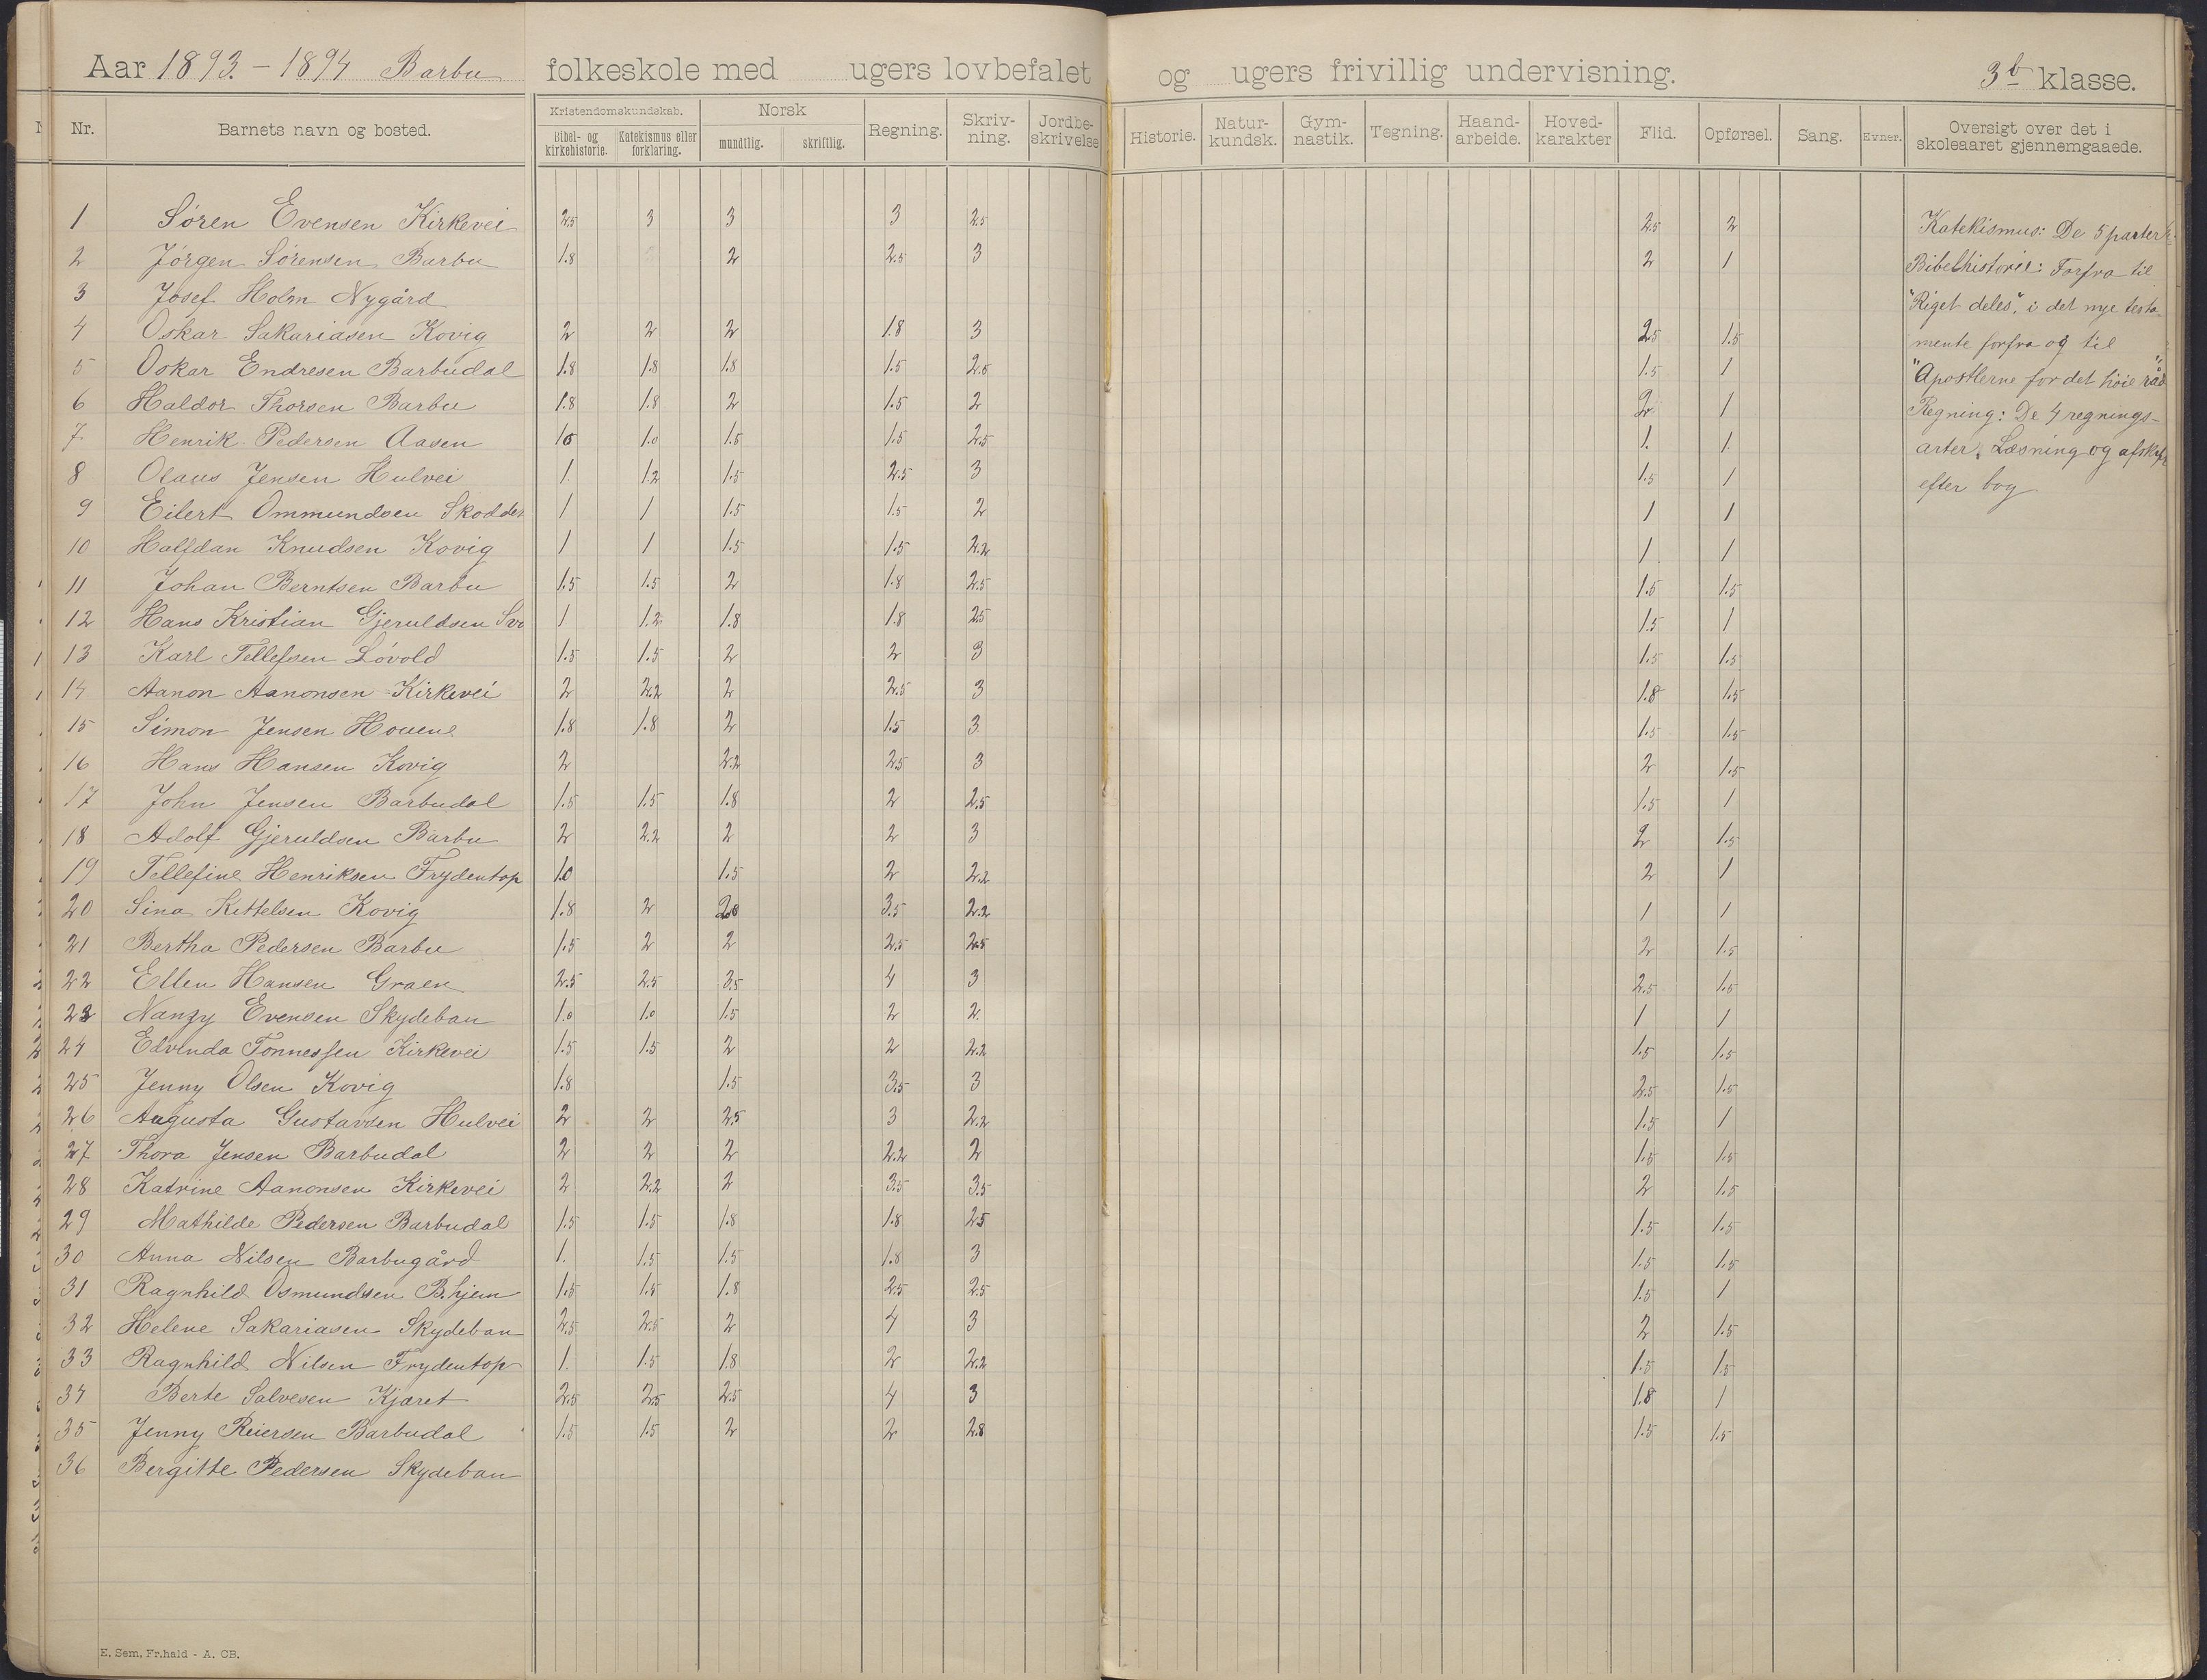 Aar 1893 - 1894 Barbu folkeskole med ugers lovbefalet og ugers frivillig undervisning. 3b klasse.
Nr. Barnets navn og bosted. Kristendomskundskab. Bibel- og kirkehistorie. Katekismus eller forklaring. Norsk mundtlig. skriftlig. Regning. Skriv-ning. Jordbe-skrivelse Historie. Natur-kundsk. Gym-nastik. Tegning. Haand-arbeide. Hoved-karakter Flid. Opførsel. Sang. Evner. Oversigt over det i skoleaaret gjennemgaaede.
1 Søren Evensen Kirkevei 2.5 3 3 3 2.5 2.5 2
2 Jørgen Sørensen Barbu 1.8 2 2.5 3 2 1
3 Josef Holm Nygård
4 Oskar Sakariasen Kovig 2 2 2 1.8 3 2.5 1.5
5 Oskar Endresen Barbudal 1.8 1.8 1.8 1.5 2.5 1.5 1
6 Haldor Thorsen Barbu 1.8 1.8 2 1.5 2 2 1
7. Henrik Pedersen Aasen 1.0 1.0 1.5 1.5 2.5 1. 1.
8 Olaus Jensen Hulvei 1. 1.2 1.5 2.5 3 1.5 1
9 Eilert Ommundsen Skodder 1 1 1.5 1.5 2 1 1
10 Halfdan Knudsen Kovig 1 1 1.5 1.5 2.2 1 1
11 Johan Berntsen Barbu 1.5 1.5 2 1.8 2.5 1.5 1.5
12 Hans Kristian Gjeruldsen 1 1.2 1.8 1.8 2.5 1.5 1
13 Karl Tellefsen Løvold 1.5 1.5 2 2 3 1.5 1.5
14 Aanon Aanonsen Kirkevei 2 2.2 2 2.5 3 1.8 1.5
15 Simon Jensen Houene 1.8 1.8 2 1.5 3 1.5 1.5
16 Hans Hansen Kovig 2 2.2 2.5 3 2 1.5
17 John Jensen Barbudal 1.5 1.5 1.8 2 2.5 1.5 1
18 Adolf Gjeruldsen Barbu 2 2.2 2 2 3 2 1.5
19 Tellefine Henriksen Frydentop 1.0 1.5 2 2.2 2 1
20 Sina Kettelsen Kovig 1.8 2 2.8 3.5 2.2 1 1
21 Bertha Pedersen Barbu 1.5 2 2 2.5 2.5 2 1.5
22 Ellen Hansen Graen 2.5 2.5 3.5 4 3 2.5 1.5
23 Nanzy Evensen Skydeban 1.0 1.0 1.5 2 2 1 1
24 Edvenda Tønnessen Kirkevei 1.5 1.5 2 2 2.2 1.5 1.5
25 Jenny Olsen Kovig 1.8 1.5 3.5 3 2.5 1.5
26 Augusta Gustavsen Hulvei 2 2 2.5 3 2.2 1.5 1
27 Thora Jensen Barbudal 2 2 2 2.2 2 1.5 1.5
28 Katrine Aanonsen Kirkevei 2 2.2 2 3.5 3.5 2 1.5
29 Mathilde Pedersen Barbudal 1.5 1.5 1.8 1.8 2.5 1.5 1.5
30 Anna Nilsen Barbugård 1. 1.5 1.5 1.8 3 1.5 1.5
31 Ragnhild Osmundsen B.hjem 1.5 1.5 1.8 2.5 2.5 1.5 1
32 Helene Sakariasen Skydeban 2.5 2.5 2 4 3 2 1.5
33 Ragnhild Nilsen Frydentop 1. 1.5 1.8 2 2.2 1.5 1.5
34 Berte Salvesen Kjæret 2.5 2.5 2.5 4 3 1.8 1
35 Jenny Reiersen Barbudal 1.5 1.5 2 2 2.8 1.5 1.5
36 Bergitte Pedersen Skydeban
Katekismus: De 5 parter
Bibelhistorie: Forfra til
"Riget deles", i det nye testa-
mente forfra og til
"Apostlerne for det høie råd"
Regning: De 4 regnings-
arter. Læsning og afskrift
efter bog
E. Sem, Fr.hald - A. CB.